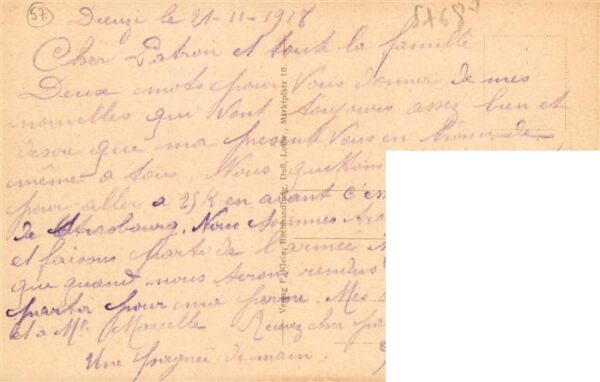 57.
5768
Dieuze le 21-11-1918
Cher Patron et toute la famille
Deux mots pour Vous donner de mes
nouvelles qui vont toujours assez bien et
que ma présente Vous en trouve de
même a tous. Nous quittons
pour aller a 25 K en avant c'es
de Strasbourg. Nous sommes
et faisons parti de l'armée
que quand nous serons rendus
partir pour ma perme. Mes
et a Mlle Marcelle Recevez cher pa
Une pognée de main.
Verlag F. Klein, Buchhandlung, Duß, Lothr., Marktplatz 10.